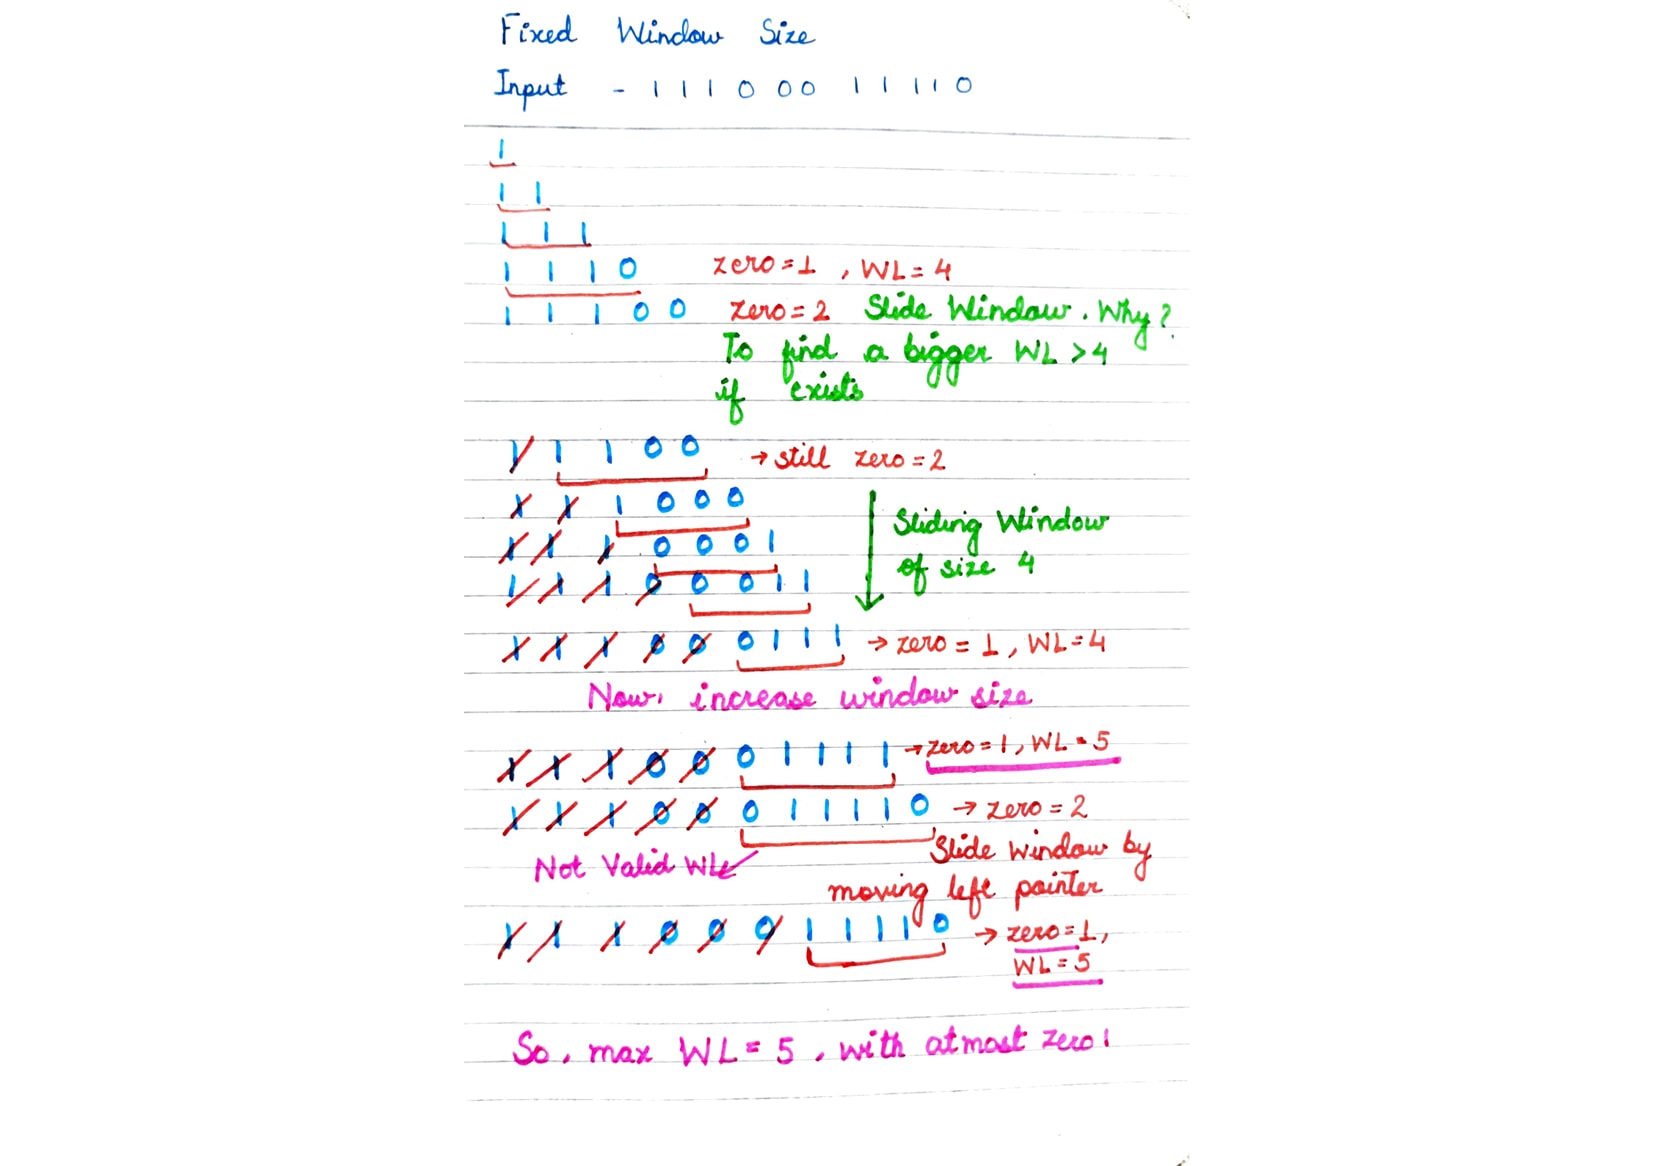 Fixed Window Size
Input - 1 1 1 0 0 0 1 1 1 1 0
1
1 1
1 1 1
1 1 1 0 zero = 1 , WL = 4
1 1 1 0 0 zero = 2 Slide Window . Why?
To find a bigger WL > 4
if exists
1 1 1 0 0 → still zero = 2
1 1 1 0 0 0
1 1 1 0 0 0 1
Sliding Window
of size 4
1 1 1 0 0 0 1 1
1 1 1 0 0 0 1 1 1 → zero = 1 , WL = 4
Now, increase window size
1 1 1 0 0 0 1 1 1 1 → zero = 1 , WL = 5
1 1 1 0 0 0 1 1 1 1 0 → zero = 2
Slide Window by
Not Valid WL
moving left pointer
1 1 1 0 0 0 1 1 1 1 0 → zero = 1,
WL = 5
So, max WL = 5 , with atmost zero 1